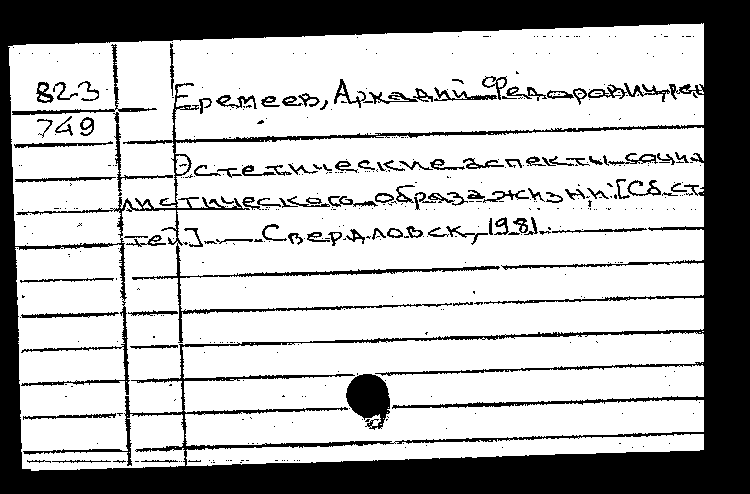 82-3
749
Еремеев, Аркадий Федорович, ред
Эстетические аспекты социа
листического образа жизни: [Сб. ста
тей] — Свердловск, 1981.